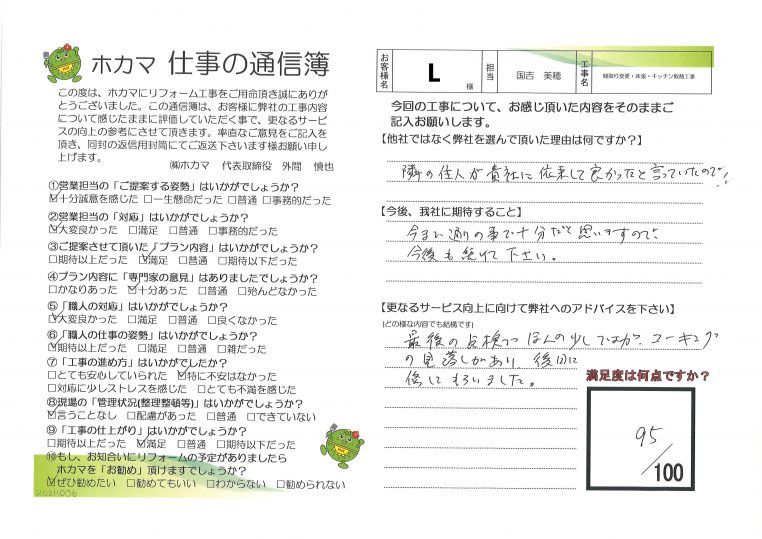 ホカマ 仕事の通信簿
この度は、ホカマにリフォーム工事をご用命頂き誠にありが
とうございました。この通信簿は、お客様に弊社の工事内容
について感じたままに評価していただく事で、更なるサービ
スの向上の参考にさせて頂きます。率直なご意見をご記入を
頂き、同封の返信用封筒にてご返送下さいます様お願い申し
上げます。
㈱ホカマ 代表取締役 外間 慎也
①営業担当の「ご提案する姿勢」はいかがでしょうか?
☑十分誠意を感じた □一生懸命だった □普通 □事務的だった
②営業担当の「対応」はいかがでしょうか?
☑大変良かった □満足 □普通 □事務的だった
③ご提案させて頂いた「プラン内容」はいかがでしょうか?
□期待以上だった ☑満足 □普通 □期待以下だった
④プラン内容に「専門家の意見」はありましたでしょうか?
□かなりあった ☑十分あった □普通 □殆んどなかった
⑤「職人の対応」はいかがでしょうか?
☑大変良かった □満足 □普通 □良くなかった
⑥「職人の仕事の姿勢」はいかがでしょうか?
☑期待以上だった □満足 □普通 □雑だった
⑦「工事の進め方」はいかがでしたか?
□とても安心していられた ☑特に不安はなかった
□対応に少しストレスを感じた □とても不満を感じた
⑧現場の「管理状況(整理整頓等)」はいかがでしょうか?
☑言うことなし □配慮があった □普通 □できていない
⑨「工事の仕上がり」はいかがでしょうか?
□期待以上だった ☑満足 □普通 □期待以下だった
⑩もし、お知合いにリフォームの予定がありましたら
ホカマを「お勧め」頂けますでしょうか?
☑ぜひ勧めたい □勧めてもいい □わからない □勧められない
20211008
お客様名 L 様 担当 国吉 美穂 工事名 間取り変更・床張・キッチン取替工事
今回の工事について、お感じ頂いた内容をそのままご
記入お願いします。
【他社ではなく弊社を選んで頂いた理由は何ですか?】
隣の住人が貴社に依来して良かったと言っていたので!
【今後、我社に期待すること】
今まで通りの事で十分だと思いますので
今後も続けて下さい。
【更なるサービス向上に向けて弊社へのアドバイスを下さい】
(どの様な内容でも結構です)
最後の点検で ほんの少しですが、コーキング
の見落しがあり、後日に
直してもらいました。
満足度は何点ですか?
95
/100